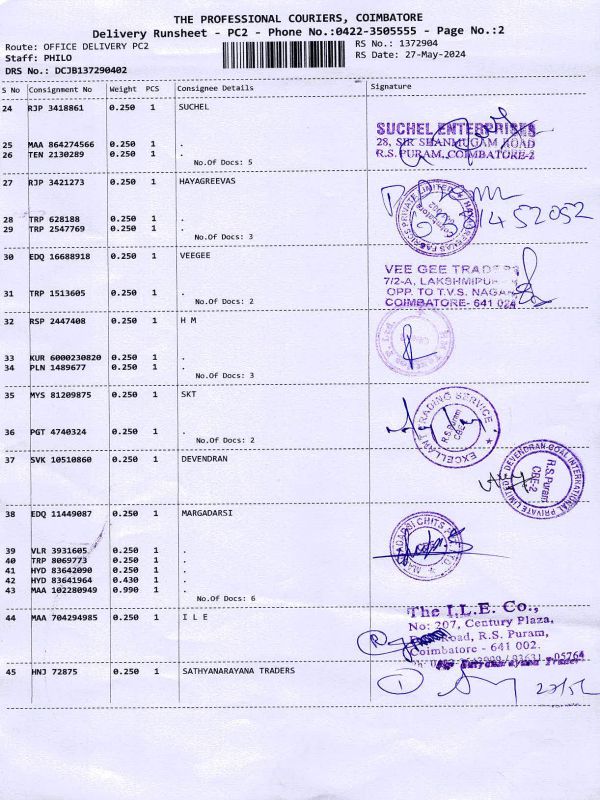 THE PROFESSIONAL COURIERS, COIMBATORE
Delivery Runsheet - PC2 - Phone No.:0422-3505555 - Page No.:2
Route: OFFICE DELIVERY PC2
RS No.: 1372904
Staff: PHILO
RS Date: 27-May-2024
DRS No.: DCJB137290402
S No Consignment No Weight PCS Consignee Details Signature
24 RJP 3418861 0.250 1 SUCHEL
SUCHEL ENTERPRISES
28, SIR SHANMUGAM ROAD
R.S. PURAM, COIMBATORE-2
25 MAA 864274566 0.250 1 .
26 TEN 2130289 0.250 1 .
No.Of Docs: 5
27 RJP 3421273 0.250 1 HAYAGREEVAS
28 TRP 628188 0.250 1 .
29 TRP 2547769 0.250 1 .
No.Of Docs: 3
30 EDQ 16688918 0.250 1 VEEGEE
VEE GEE
7/2-A,
OPP. TO T.V.S.
COIMBATORE- 641
31 TRP 1513605 0.250 1 .
No.Of Docs: 2
32 RSP 2447408 0.250 1 H M
33 KUR 6000230820 0.250 1 .
34 PLN 1489677 0.250 1 .
No.Of Docs: 3
35 MYS 81209875 0.250 1 SKT
EXCELLANT TRADING SERVICE
R.S. Puram
36 PGT 4740324 0.250 1 .
No.Of Docs: 2
37 SVK 10510860 0.250 1 DEVENDRAN
DEVENDRAN COAL INTERNATIONAL PRIVATE LIMITED
R.S. Puram
CBE-2
38 EDQ 11449087 0.250 1 MARGADARSI
39 VLR 3931605 0.250 1 .
40 TRP 8069773 0.250 1 .
41 HYD 83642090 0.250 1 .
42 HYD 83641964 0.430 1 .
43 MAA 102280949 0.990 1 .
No.Of Docs: 6
44 MAA 704294985 0.250 1 I L E
The I.L.E. Co.,
No: 207, Century Plaza,
Road, R.S. Puram,
Coimbatore - 641 002.
45 HNJ 72875 0.250 1 SATHYANARAYANA TRADERS